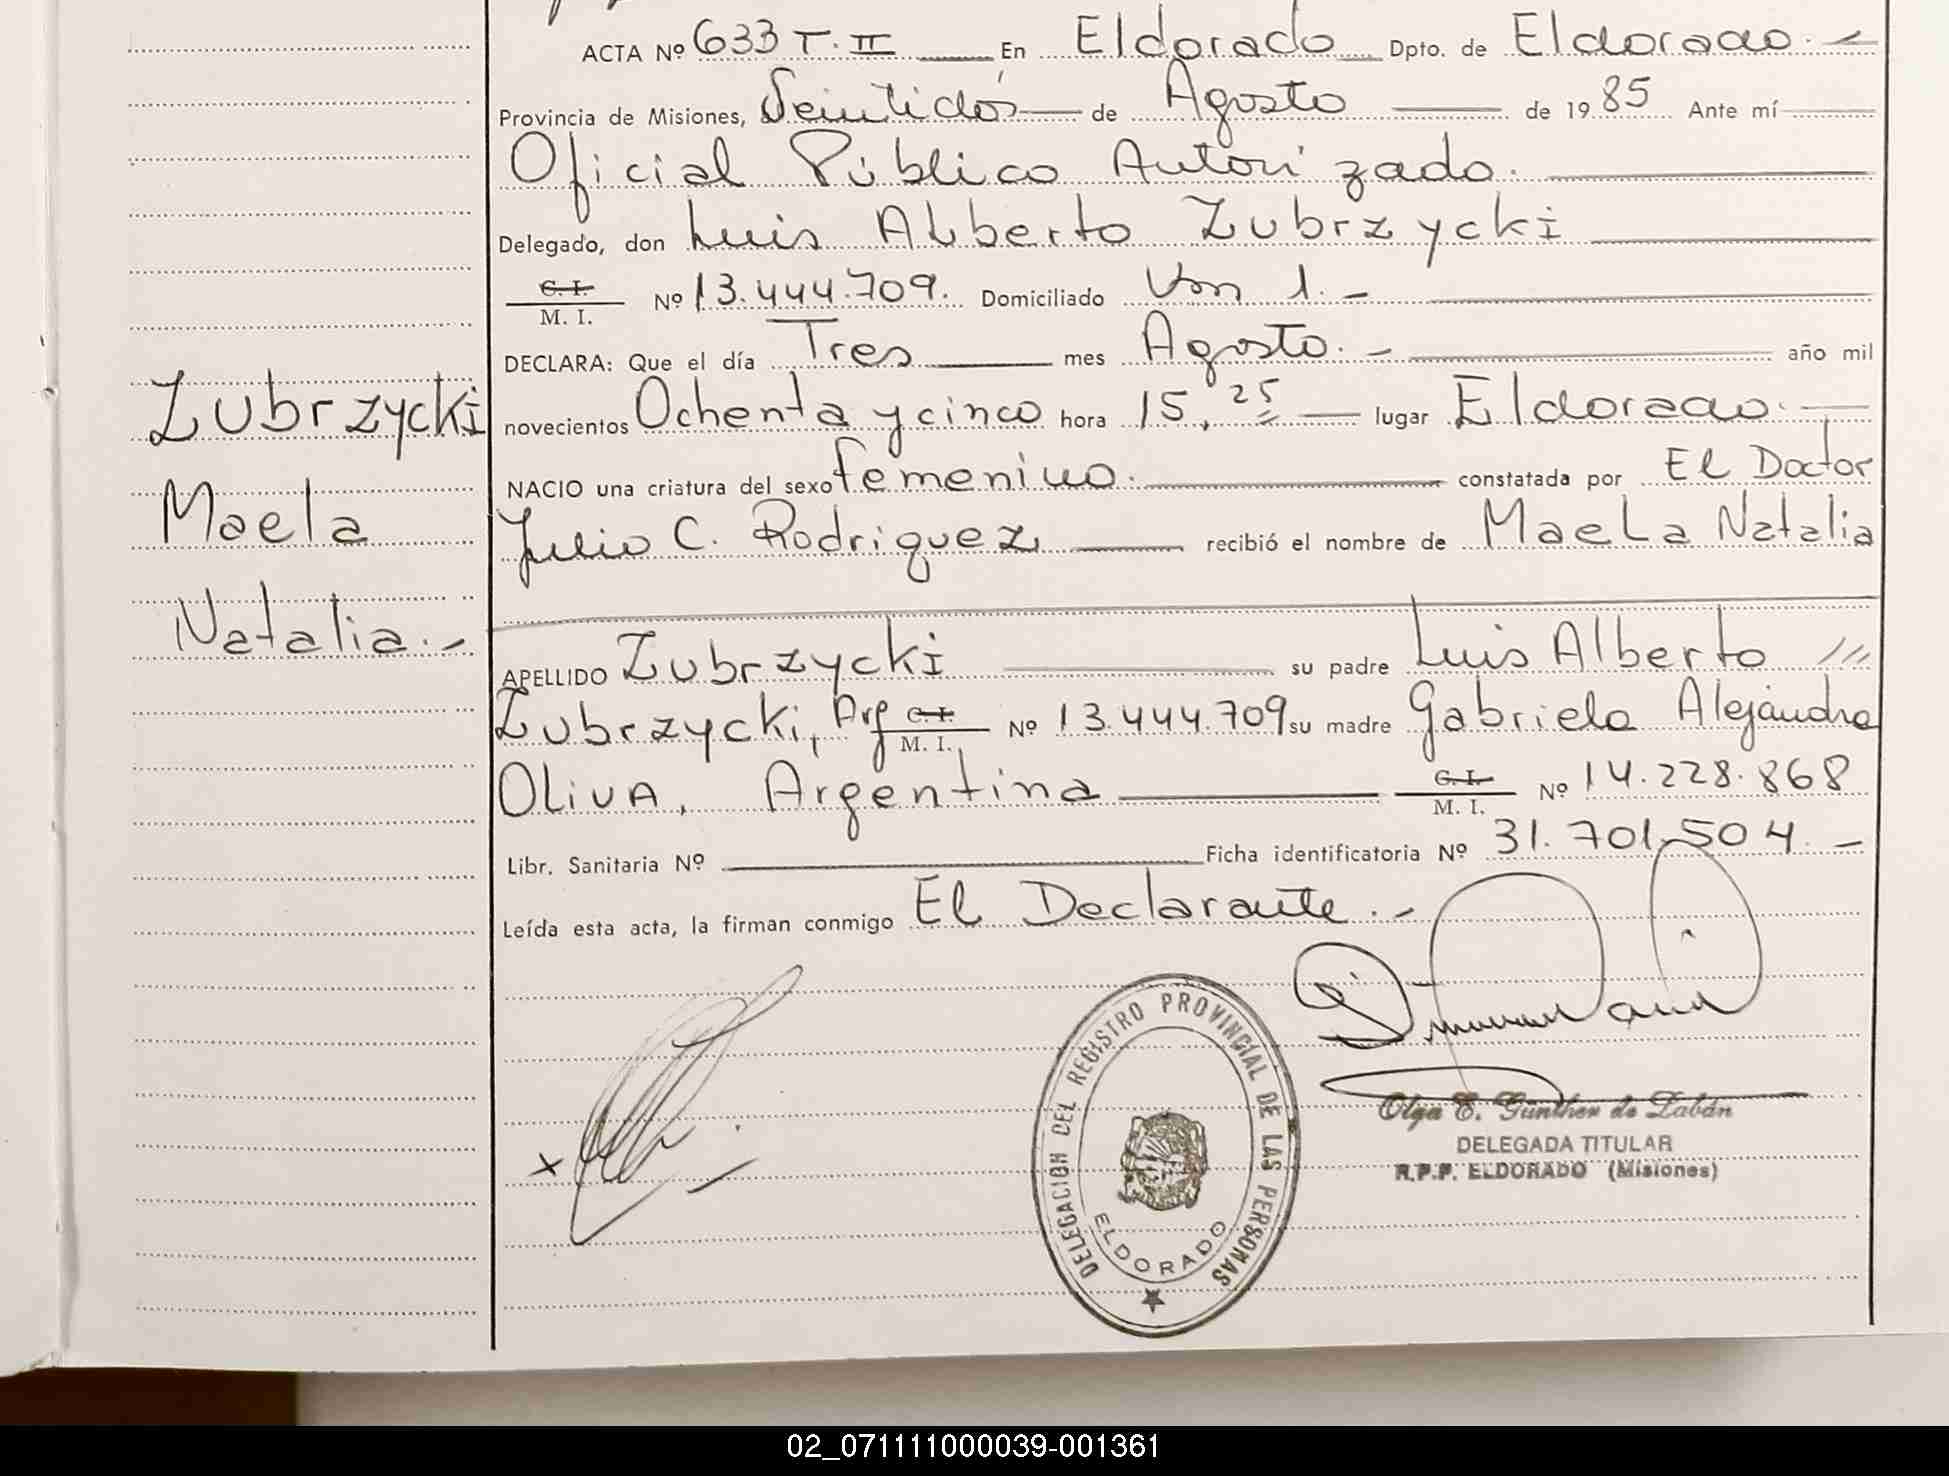 ACTA Nº 633 T. II En Eldorado Dpto. de Eldorado.-
Provincia de Misiones, Veintidós de Agosto de 1985 Ante mí
Oficial Público Autorizado.
Delegado, don Luis Alberto Zubrzycki
C. I.
M. I. Nº 13.444.709. Domiciliado Km 1.-
DECLARA: Que el día Tres mes Agosto.- año mil
novecientos Ochenta y cinco hora 15,25 lugar Eldorado.
NACIO una criatura del sexo femenino. constatada por El Doctor
Julio C. Rodriguez recibió el nombre de Maela Natalia
APELLIDO Zubrzycki su padre Luis Alberto
Zubrzycki, Arg C. I. M. I. Nº 13.444.709 su madre Gabriela Alejandra
Oliva, Argentina C. I. M. I. Nº 14.228.868
Libr. Sanitaria Nº Ficha identificatoria Nº 31.701.504.-
Leída esta acta, la firman conmigo El Declarante.-
Zubrzycki
Maela
Natalia.-
x
DELEGACION DEL REGISTRO PROVINCIAL DE LAS PERSONAS
ELDORADO
Olga E. Günther de Zabán
DELEGADA TITULAR
R.P.P. ELDORADO (Misiones)
02_071111000039-001361